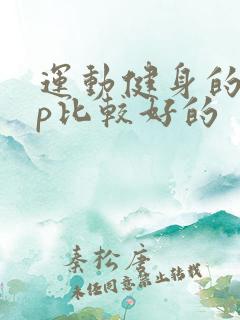 運動健身的
p比較好的
秦松唐
未经同意禁止转载